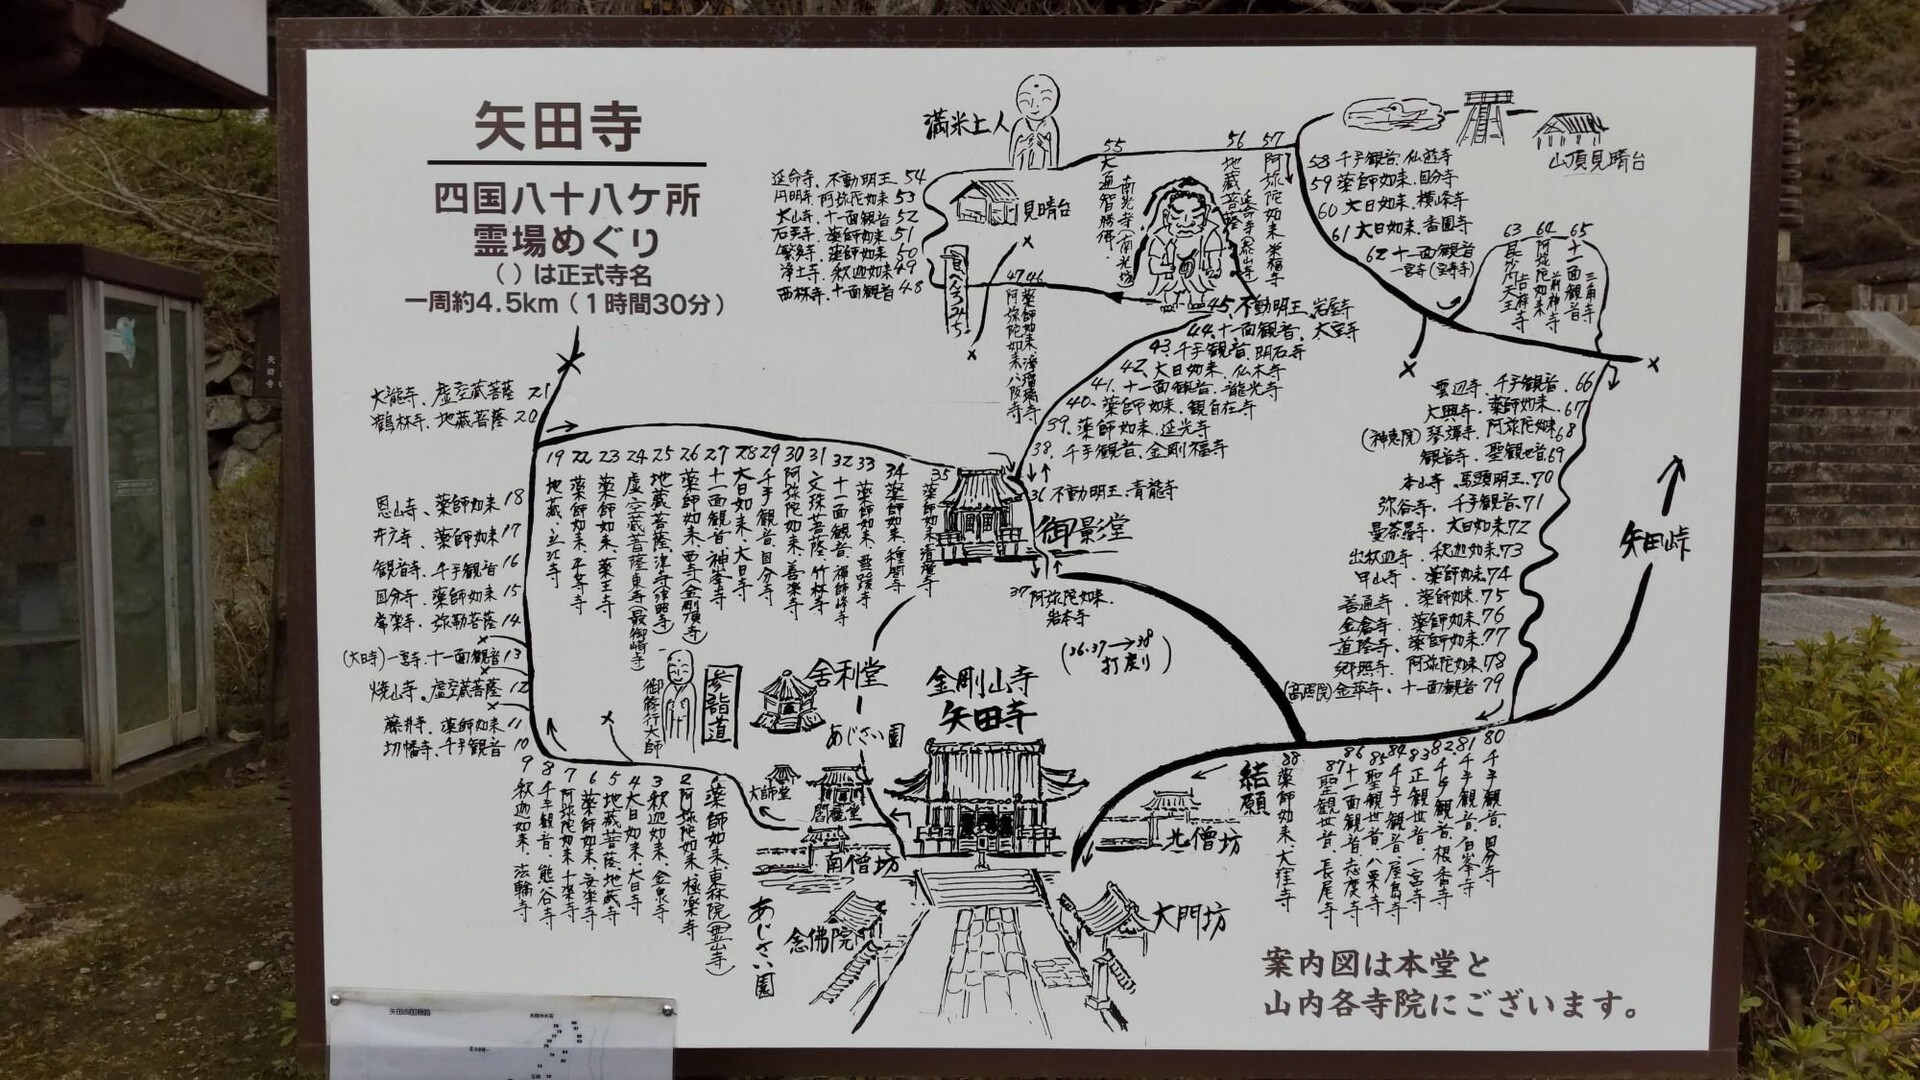 矢田寺
四国八十八ケ所
霊場めぐり
（ ）は正式寺名
一周約4.5km（1時間30分）
満米上人
見晴台
山頂見晴台
延命寺、不動明王 54
円明寺、阿弥陀如来 53
太山寺、十一面観音 52
石手寺、薬師如来 51
繁多寺、薬師如来 50
浄土寺、釈迦如来 49
西林寺、十一面観音 48
47 阿弥陀如来 八阪寺
46 薬師如来 浄瑠璃寺
55 大通智勝佛 南光寺(南光坊)
56 地蔵菩薩
57 阿弥陀如来 栄福寺
58 千手観音、仙遊寺
59 薬師如来、国分寺
60 大日如来、横峰寺
61 大日如来、香園寺
62 十一面観音
63 毘沙門天王 吉祥寺
64 阿弥陀如来 前神寺
65 十一面観音 三角寺
45、不動明王、岩屋寺
44、十一面観音、大宝寺
43、千手観音、明石寺
42、大日如来、仏木寺
41、十一面観音、龍光寺
40、薬師如来、観自在寺
39、薬師如来、延光寺
38、千手観音、金剛福寺
36 不動明王、青龍寺
御影堂
37 阿弥陀如来、
岩本寺
（36.37→38
打戻り）
大龍寺、虚空蔵菩薩 21
鶴林寺、地蔵菩薩 20
恩山寺、薬師如来 18
井戸寺、薬師如来 17
観音寺、千手観音 16
国分寺、薬師如来 15
常楽寺、弥勒菩薩 14
(大日寺)一宮寺、十一面観音 13
焼山寺、虚空蔵菩薩 12
藤井寺、薬師如来 11
切幡寺、千手観音 10
19 地蔵、立江寺
22 薬師如来、平等寺
23 薬師如来、薬王寺
24 虚空蔵菩薩 東寺(最御崎寺)
25 地蔵菩薩、津寺(津照寺)
26 薬師如来、西寺(金剛頂寺)
27 十一面観音 神峯寺
28 大日如来、大日寺
29 千手観音 国分寺
30 阿弥陀如来、善楽寺
31 文珠菩薩、竹林寺
32 十一面観音、禅師峰寺
33 薬師如来、雪蹊寺
34 薬師如来、種間寺
35 薬師如来 清瀧寺
雲辺寺、千手観音 66
大興寺、薬師如来 67
(神恵院)琴弾寺、阿弥陀如来 68
観音寺、聖観世音 69
本山寺、馬頭明王、70
弥谷寺、千手観音、71
曼荼羅寺、大日如来 72
出釈迦寺、釈迦如来 73
甲山寺、薬師如来 74
善通寺、薬師如来、75
金倉寺、薬師如来、76
道隆寺、薬師如来、77
郷照寺、阿弥陀如来 78
十一面観音 79
矢田峠
御修行大師
参詣道
舎利堂
あじさい園
金剛山寺
矢田寺
大師堂
閻魔堂
南僧坊
北僧坊
念佛院
大門坊
あじさい園
結願
9 釈迦如来、法輪寺
8 千手観音、熊谷寺
7 阿弥陀如来 十楽寺
6 薬師如来、安楽寺
5 地蔵菩薩、地蔵寺
4 大日如来、大日寺
3 釈迦如来、金泉寺
2 阿弥陀如来、極楽寺
薬師如来、東林院(霊山寺)
88 薬師如来、大窪寺
87 聖観世音、長尾寺
86 十一面観音、志度寺
85 聖観世音、八栗寺
84 千手観音、屋島寺
83 正観世音、一宮寺
82 千手観音、根香寺
81 千手観音、白峯寺
80 千手観音、国分寺
案内図は本堂と
山内各寺院にございます。